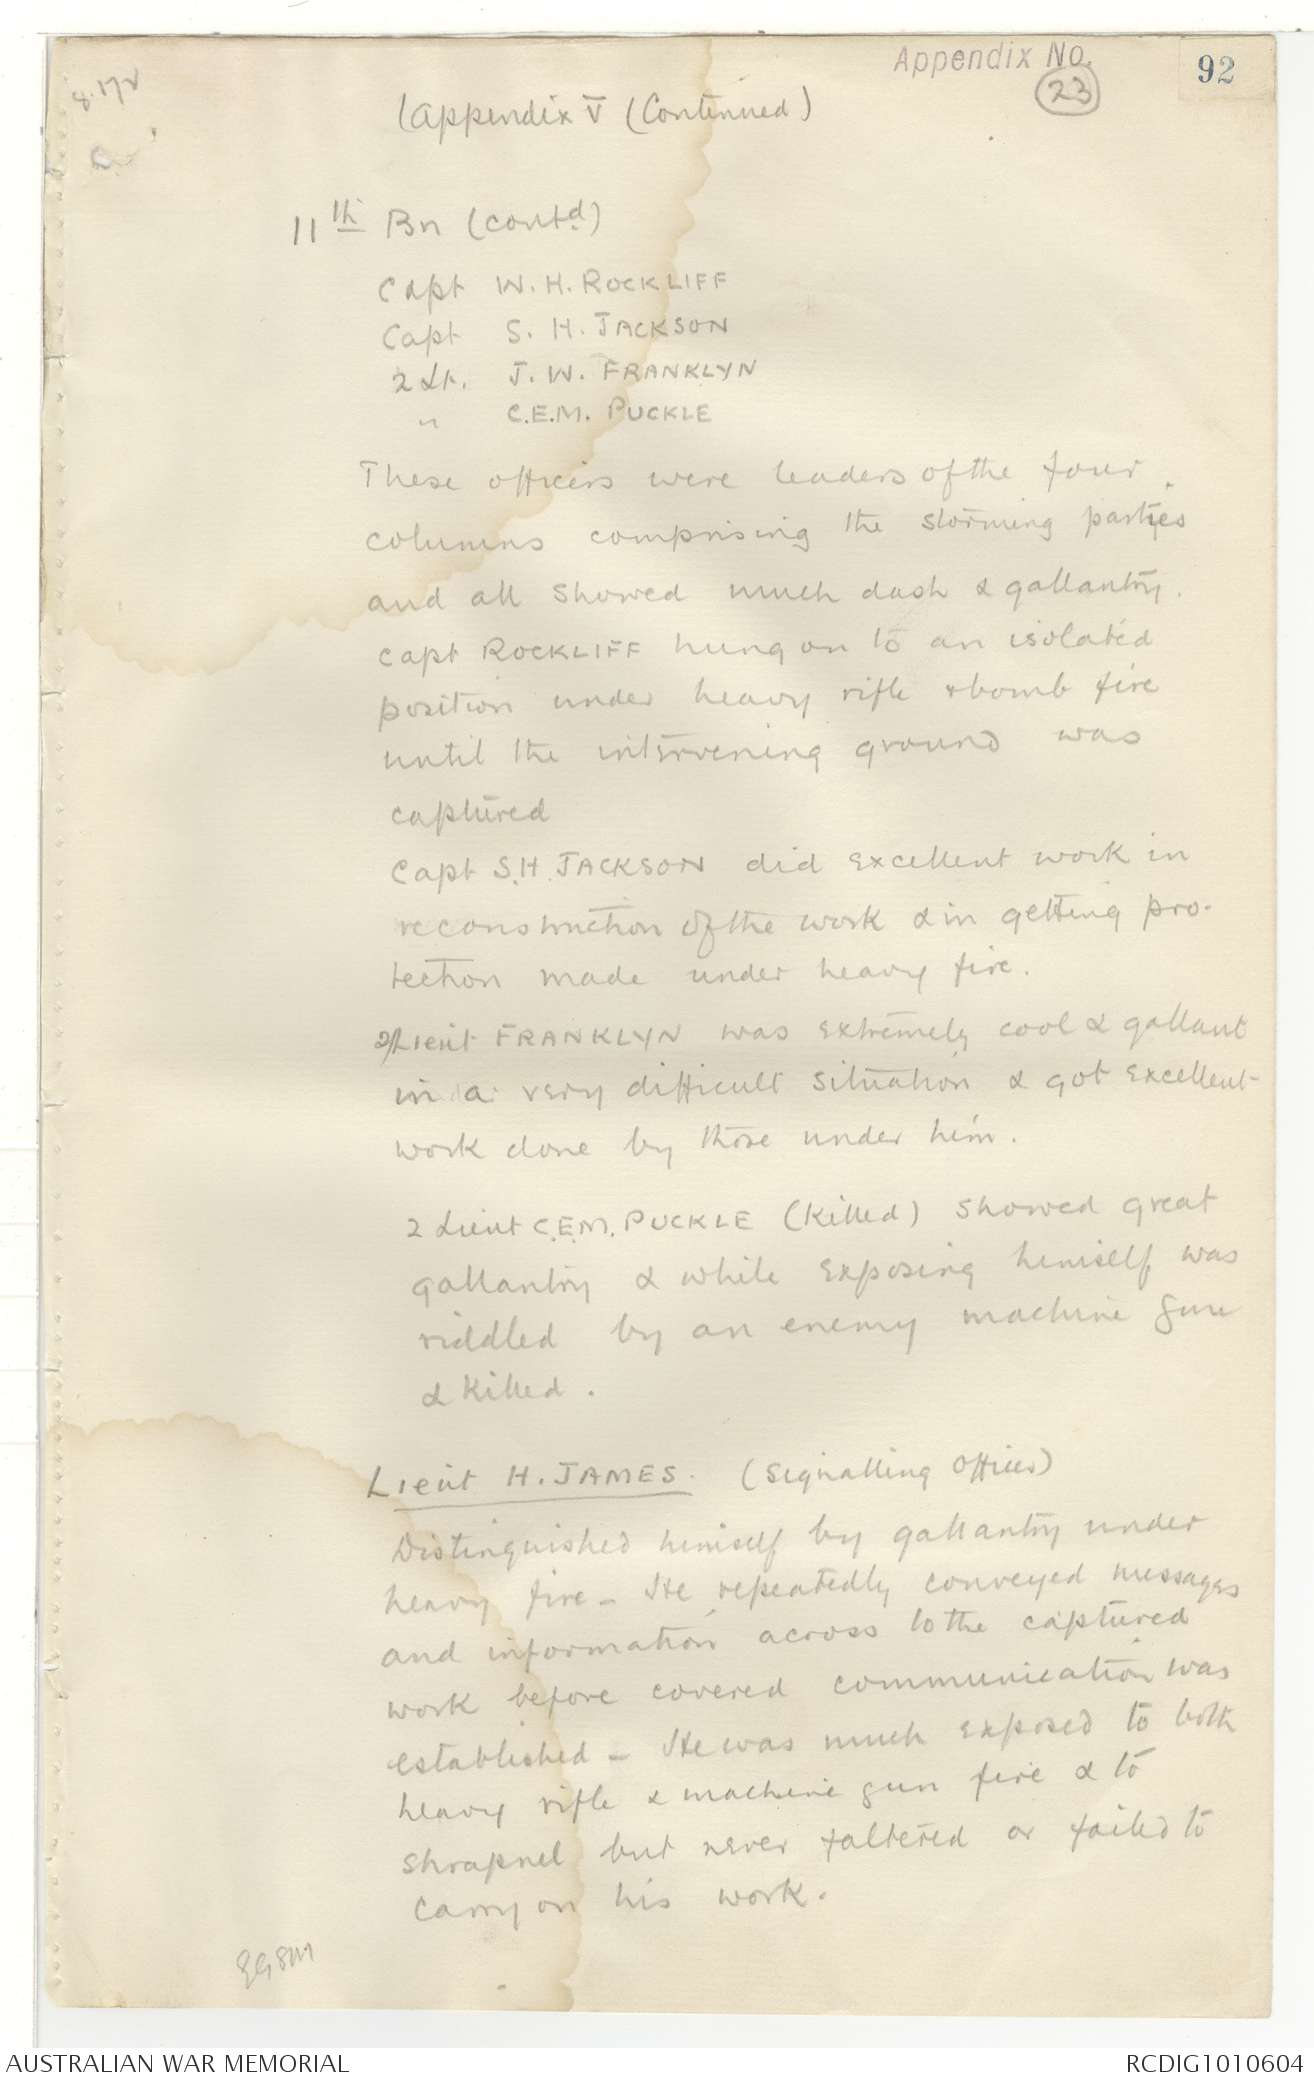 Appendix No.
92
23
Appendix V (Continued)
11th Bn (contd)
Capt W. H. ROCKLIFF
Capt S. H. JACKSON
2 Lt. J. W. FRANKLYN
" C.E.M. PUCKLE
These officers were leaders of the four
columns comprising the storming parties
and all showed much dash & gallantry.
Capt ROCKLIFF hung on to an isolated
position under heavy rifle & bomb fire
until the intervening ground was
captured
Capt S.H. JACKSON did excellent work in
reconstruction of the work & in getting pro-
tection made under heavy fire.
2/Lieut FRANKLYN was extremely cool & gallant
in a very difficult situation & got excellent
work done by those under him.
2 Lieut C.E.M. PUCKLE (Killed) showed great
gallantry & while exposing himself was
riddled by an enemy machine gun
& killed.
Lieut H. JAMES. (Signalling Officer)
Distinguished himself by gallantry under
heavy fire - He repeatedly conveyed messages
and information across to the captured
work before covered communication was
established - He was much exposed to both
heavy rifle & machine gun fire & to
shrapnel but never faltered or failed to
carry on his work.
AUSTRALIAN WAR MEMORIAL
RCDIG1010604